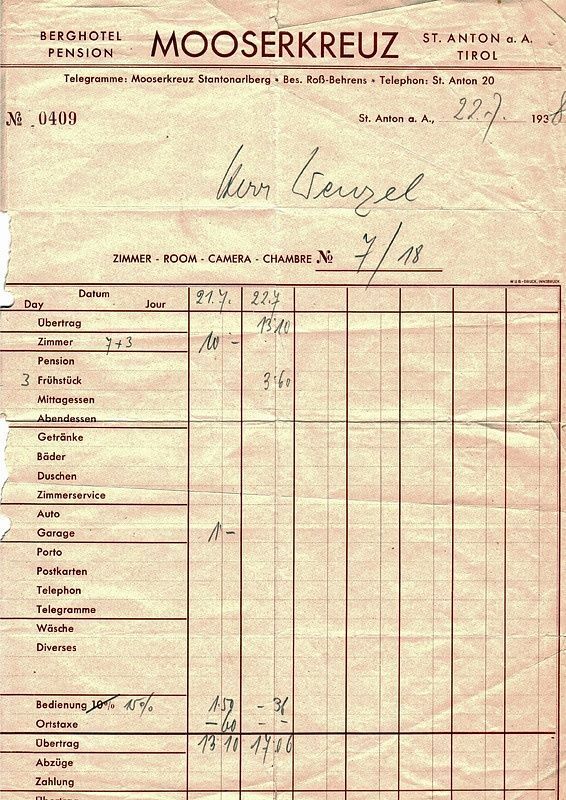 BERGHOTEL PENSION MOOSERKREUZ ST. ANTON a. A. TIROL
Telegramme: Mooserkreuz Stantonarlberg • Bes. Roß-Behrens • Telephon: St. Anton 20
No 0409 St. Anton a. A., 22.7. 1938
Herr Wenzel
ZIMMER - ROOM - CAMERA - CHAMBRE No 7/18
W.U.B.-DRUCK, INNSBRUCK
Datum
Day Jour 21.7. 22.7
Übertrag 13 10
Zimmer 7+3 10 -
Pension
3 Frühstück 3.60
Mittagessen
Abendessen
Getränke
Bäder
Duschen
Zimmerservice
Auto
Garage 1 -
Porto
Postkarten
Telephon
Telegramme
Wäsche
Diverses
Bedienung 10% 15% 1.50 - 36
Ortstaxe - 60 - -
Übertrag 13 10 17.06
Abzüge
Zahlung
Übertrag